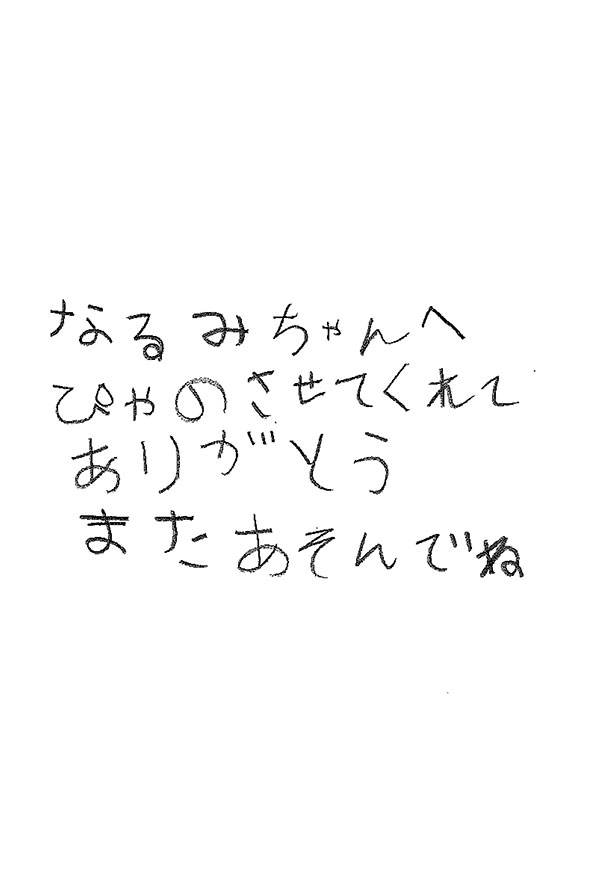 なるみちゃんへ
ぴゃのさせてくれて
ありがとう
またあそんでね